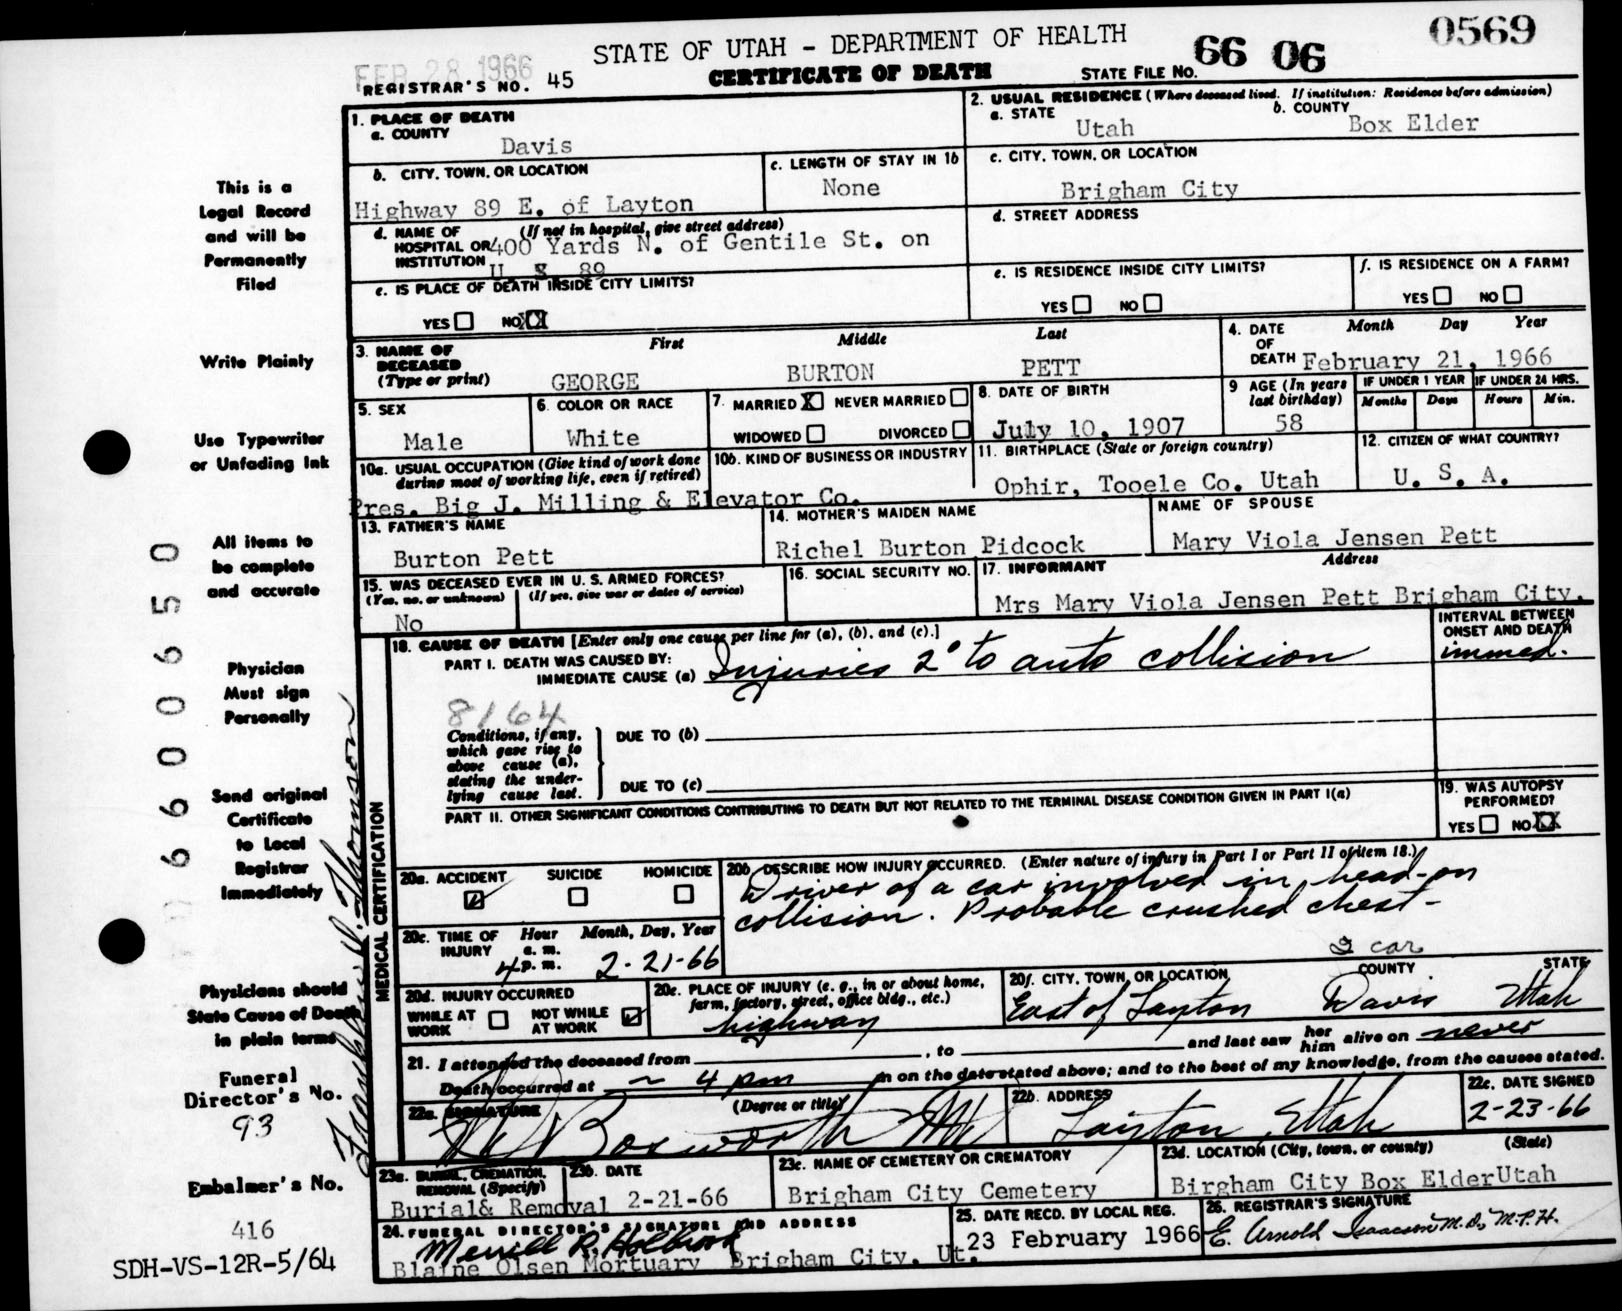 STATE OF UTAH - DEPARTMENT OF HEALTH
0569
FEB 28 1966
REGISTRAR'S NO. 45
CERTIFICATE OF DEATH
STATE FILE NO. 66 06
1. PLACE OF DEATH
a. COUNTY
Davis
2. USUAL RESIDENCE (Where deceased lived. If institution: Residence before admission)
a. STATE
Utah
b. COUNTY
Box Elder
b. CITY, TOWN, OR LOCATION
Highway 89 E. of Layton
c. LENGTH OF STAY IN 1b
None
c. CITY, TOWN, OR LOCATION
Brigham City
d. NAME OF HOSPITAL OR INSTITUTION (If not in hospital, give street address)
400 Yards N. of Gentile St. on
U. S. 89
d. STREET ADDRESS
e. IS PLACE OF DEATH INSIDE CITY LIMITS?
YES NO XX
e. IS RESIDENCE INSIDE CITY LIMITS?
YES NO
f. IS RESIDENCE ON A FARM?
YES NO
3. NAME OF DECEASED (Type or print)
First Middle Last
GEORGE BURTON PETT
4. DATE OF DEATH
Month Day Year
February 21, 1966
5. SEX
Male
6. COLOR OR RACE
White
7. MARRIED X NEVER MARRIED
WIDOWED DIVORCED
8. DATE OF BIRTH
July 10, 1907
9 AGE (In years last birthday)
58
IF UNDER 1 YEAR
Months Days
IF UNDER 24 HRS.
Hours Min.
10a. USUAL OCCUPATION (Give kind of work done during most of working life, even if retired)
10b. KIND OF BUSINESS OR INDUSTRY
Pres. Big J. Milling & Elevator Co.
11. BIRTHPLACE (State or foreign country)
Ophir, Tooele Co. Utah
12. CITIZEN OF WHAT COUNTRY?
U. S. A.
13. FATHER'S NAME
Burton Pett
14. MOTHER'S MAIDEN NAME
Richel Burton Pidcock
NAME OF SPOUSE
Mary Viola Jensen Pett
15. WAS DECEASED EVER IN U. S. ARMED FORCES?
(Yes, no, or unknown) (If yes, give war or dates of service)
No
16. SOCIAL SECURITY NO.
17. INFORMANT Address
Mrs Mary Viola Jensen Pett Brigham City.
MEDICAL CERTIFICATION
18. CAUSE OF DEATH [Enter only one cause per line for (a), (b), and (c).]
PART I. DEATH WAS CAUSED BY:
IMMEDIATE CAUSE (a) Injuries 2° to auto collision
INTERVAL BETWEEN ONSET AND DEATH
immed.
8164
Conditions, if any, which gave rise to above cause (a), stating the underlying cause last.
DUE TO (b)
DUE TO (c)
PART II. OTHER SIGNIFICANT CONDITIONS CONTRIBUTING TO DEATH BUT NOT RELATED TO THE TERMINAL DISEASE CONDITION GIVEN IN PART I(a)
19. WAS AUTOPSY PERFORMED?
YES NO XX
20a. ACCIDENT SUICIDE HOMICIDE
20b. DESCRIBE HOW INJURY OCCURRED. (Enter nature of injury in Part I or Part II of item 18.)
Driver of a car involved in head-on
collision. Probable crushed chest-
2 car
20c. TIME OF INJURY
Hour Month, Day, Year
a. m.
4 p. m. 2-21-66
20d. INJURY OCCURRED
WHILE AT WORK NOT WHILE AT WORK
20e. PLACE OF INJURY (e. g., in or about home, farm, factory, street, office bldg., etc.)
highway
20f. CITY, TOWN, OR LOCATION COUNTY STATE
East of Layton Davis Utah
21. I attended the deceased from , to and last saw her him alive on never
Death occurred at ~ 4 pm m on the date stated above; and to the best of my knowledge, from the causes stated.
22a. SIGNATURE (Degree or title)
Bosworth MD
22b. ADDRESS
Layton, Utah
22c. DATE SIGNED
2-23-66
23a. BURIAL, CREMATION, REMOVAL (Specify)
Burial& Removal
23b. DATE
2-21-66
23c. NAME OF CEMETERY OR CREMATORY
Brigham City Cemetery
23d. LOCATION (City, town, or county) (State)
Birgham City Box ElderUtah
24. FUNERAL DIRECTOR'S SIGNATURE AND ADDRESS
Merrill R. Holbrook
Blaine Olsen Mortuary Brigham City. Ut.
25. DATE RECD. BY LOCAL REG.
23 February 1966
26. REGISTRAR'S SIGNATURE
E. Arnold Isaacson M.D., M.P.H.
This is a
Legal Record
and will be
Permanently
Filed
Write Plainly
Use Typewriter
or Unfading Ink
All items to
be complete
and accurate
Physician
Must sign
Personally
Send original
Certificate
to Local
Registrar
Immediately
Physicians should
State Cause of Death
in plain terms
Funeral
Director's No.
93
Embalmer's No.
416
SDH-VS-12R-5/64
6 6 0 0 6 5 0